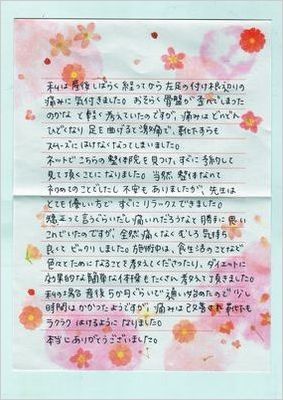 私は産後しばらく経ってから左足の付け根辺りの
痛みに気付きました。おそらく骨盤が歪んでしまった
のかなと軽く考えていたのですが、痛みはどんどん
ひどくなり足を曲げると激痛で、靴下すらも
スムーズにはけなくなってしまいました。
ネットでこちらの整体院を見つけ、すぐに予約して
見て頂くことになりました。当然、整体なんて
初めてのことでしたし不安もありましたが、先生は
とても優しい方で すぐにリラックスできました。
矯正って言うくらいだし痛いんだろうなと勝手に思い
こんでいたのですが、全然痛くなくむしろ気持ち
良くてビックリしました。施術中は、食生活のことなど
色々とためになることを教えてくださったり、ダイエットに
効果的な簡単な体操もたくさん教えて頂きました。
私の場合 産後5か月ぐらいで通い始めたので少し
時間はかかったようですが、痛みは改善され靴下も
ラクラクはけるようになりました。
本当にありがとうございました。